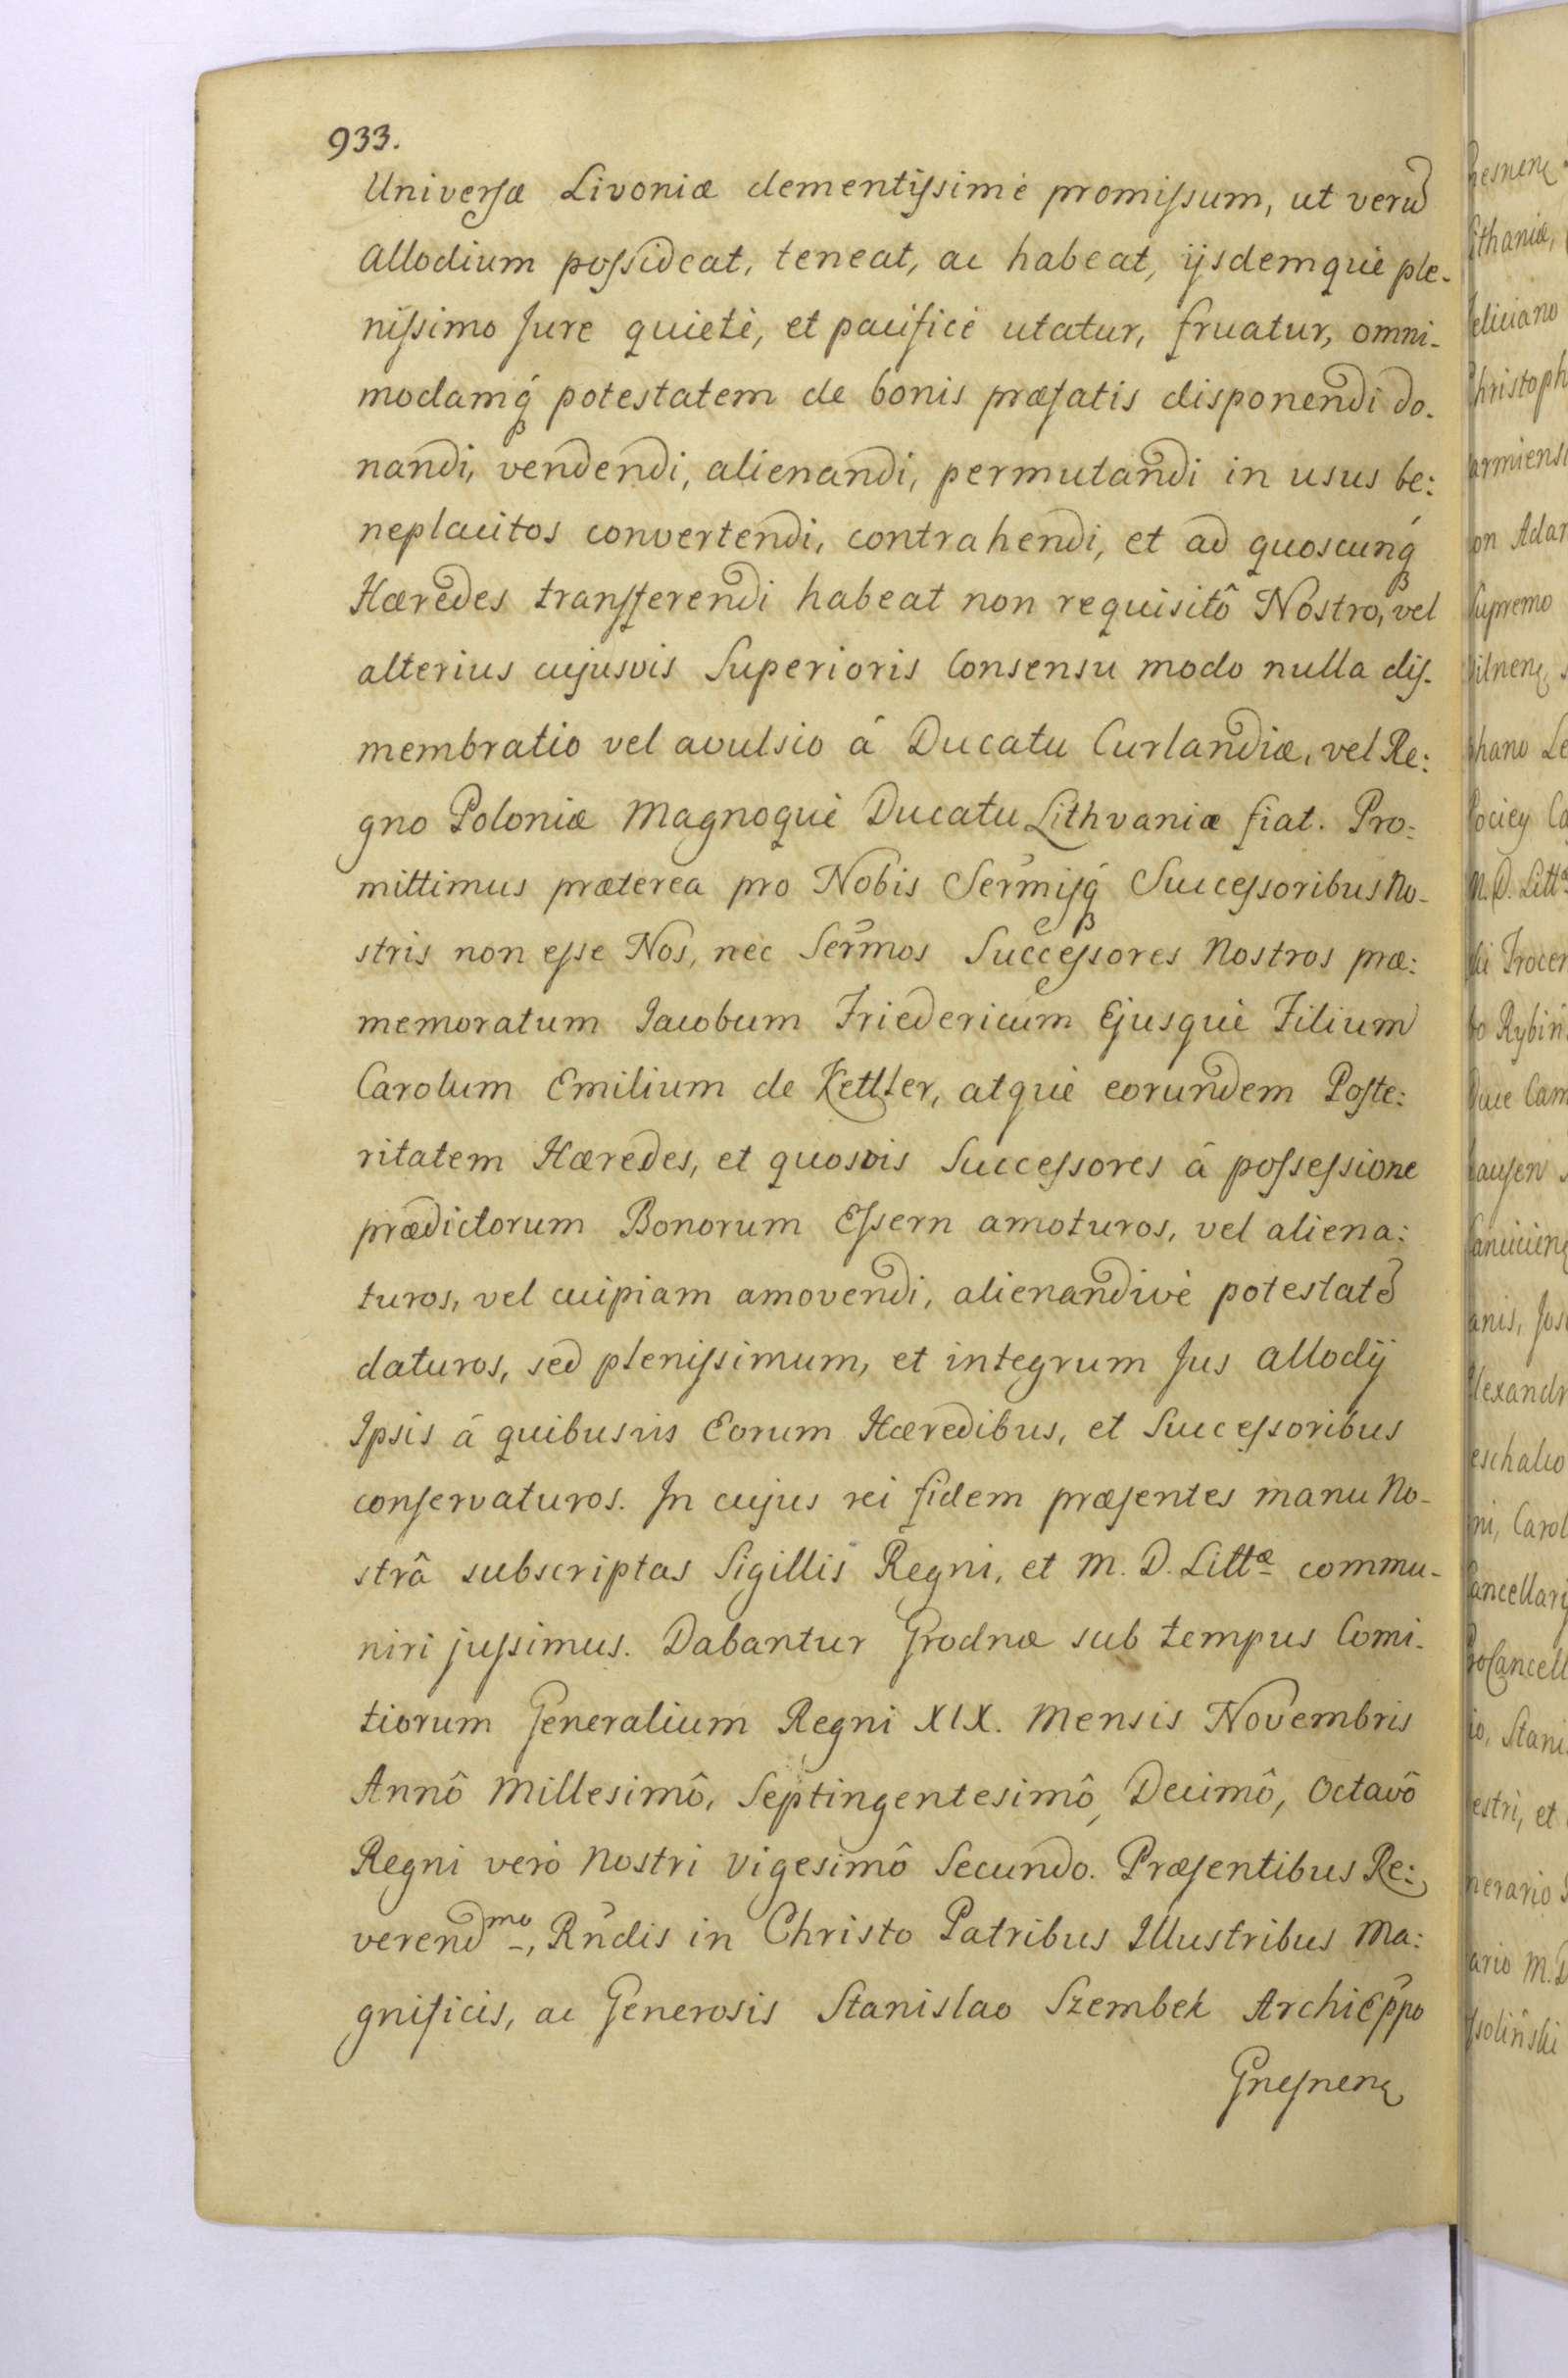 933.
Universæ Livoniæ clementissimè promissum, ut verũ
Allodium possideat, teneat, ac habeat, ijsdemquè ple-
nissimo Jure quietè, et pacificè utatur, fruatur, omni-
modamq́ potestatem de bonis præfatis disponendi do-
nandi, vendendi, alienandi, permutandi in usus be:
neplacitos convertendi, contrahendi, et ad quoscunq́
Hæredes transferendi habeat non requisitô Nostro, vel
alterius cujusvis Superioris Consensu modo nulla dis-
membratio vel avulsio á Ducatu Curlandiæ, vel Re:
gno Poloniæ Magnoquè Ducatu Lithvaniæ fiat. Pro:
mittimus præterea pro Nobis Serm̃isq́ Successoribus No-
stris non esse Nos, nec Serm̃os Successores Nostros præ:
memoratum Jacobum Friedericum Ejusquè Filium
Carolum Emilium de Kettler, atquè eorundem Poste:
ritatem Hæredes, et quosvis Successores â possessione
prædictorum Bonorum Essern amoturos, vel aliena:
turos, vel cuipiam amovendi, alienandivè potestatẽ
daturos, sed plenissimum, et integrum Jus allodij
Ipsis á quibusvis Eorum Hæredibus, et Successoribus
conservaturos. In cujus rei fidem præsentes manu No-
strâ subscriptas Sigillis Regni, et M. D. Littæ commu-
niri jussimus. Dabantur Grodnæ sub tempus Comi-
tiorum Generalium Regni XIX. Mensis Novembris
Annô Millesimô, Septingentesimô, Decimô, Octavô
Regni verò Nostri Vigesimô Secundo. Præsentibus Re:
verendmo, Rñdis in Christo Patribus Illustribus Ma:
gnificis, ac Generosis Stanislao Szembek ArchiEp̃po
Gnesnenę